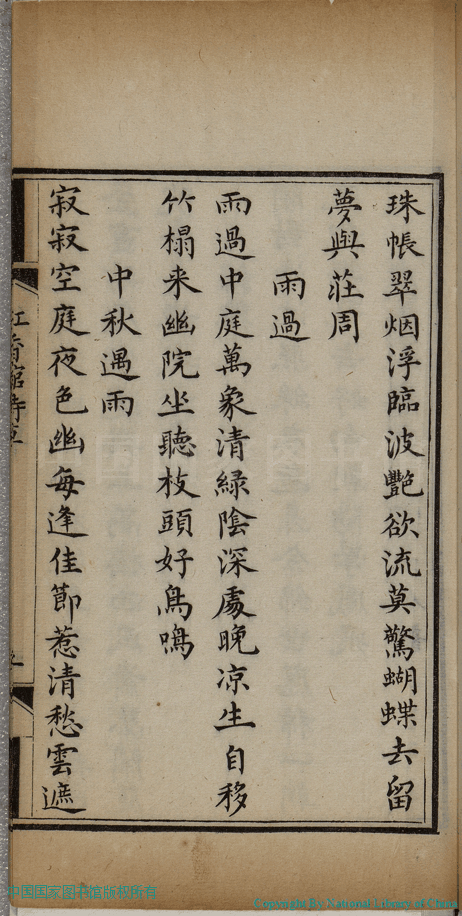 珠帳翠烟浮臨波艷欲流莫驚蝴蝶去留
夢與莊周
雨過
雨過中庭萬象清綠陰深處晚凉生自移
竹榻来幽院坐聽枝頭好鳥鳴
中秋遇雨
寂寂空庭夜色幽每逢佳節惹清愁雲遮
中国国家图书馆版权所有
Copyright By National Library of China